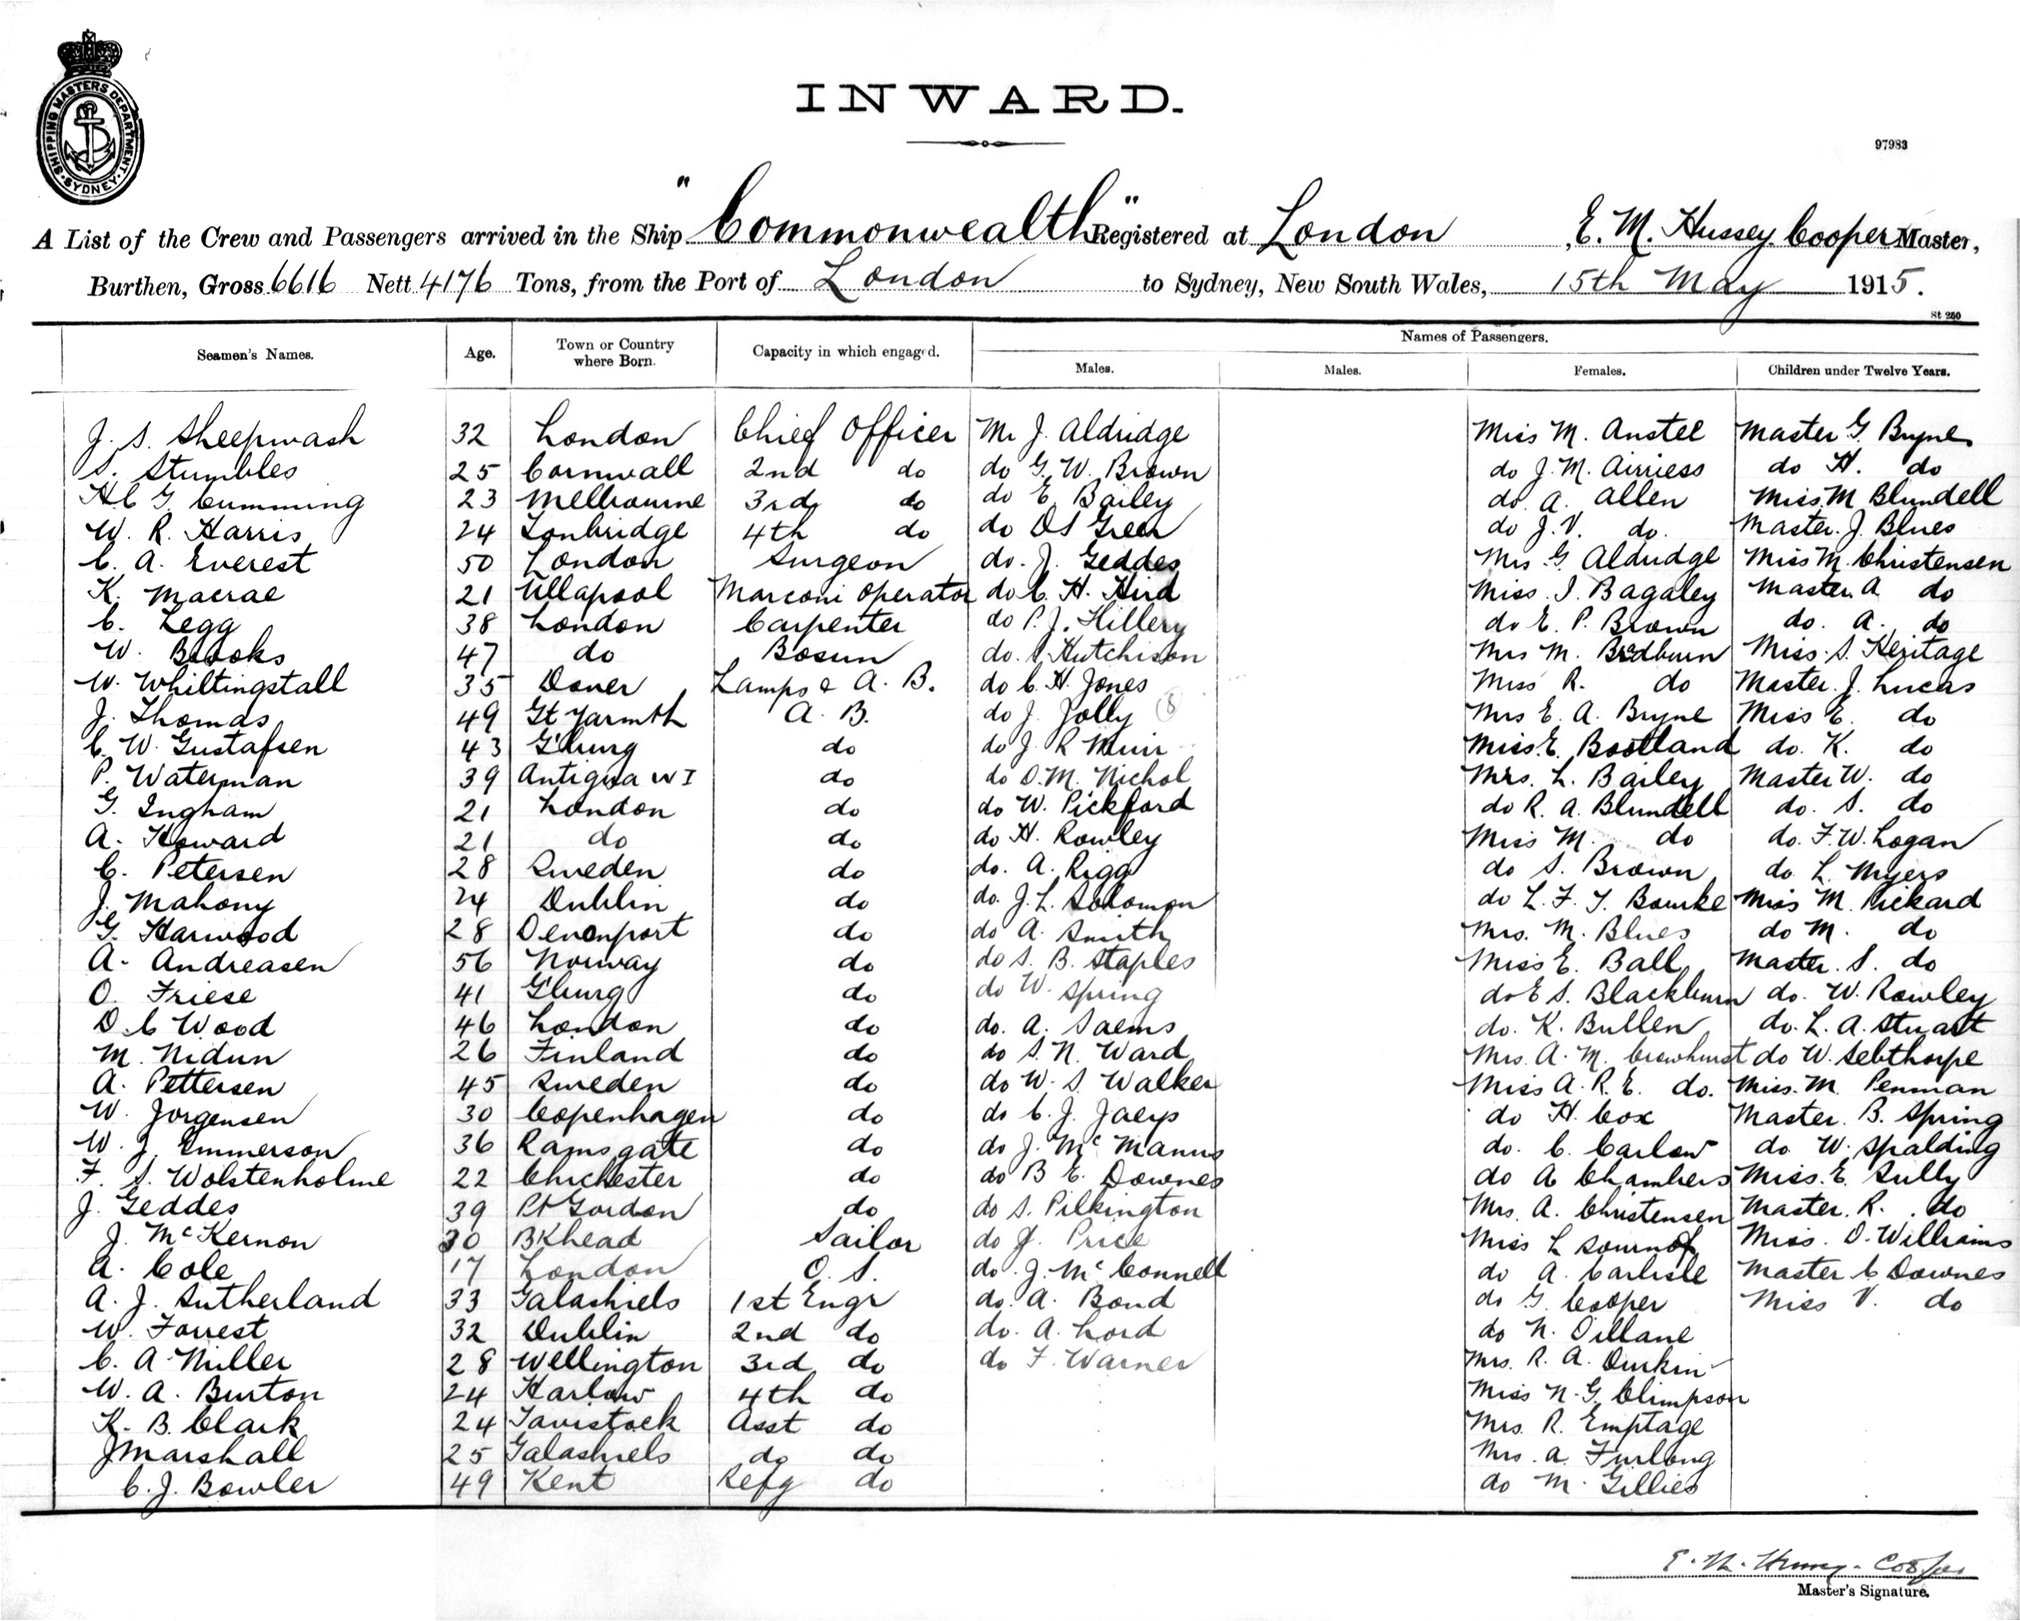 SHIPPING MASTERS DEPARTMENT
SYDNEY
INWARD.
97983
A List of the Crew and Passengers arrived in the Ship "Commonwealth" Registered at London E. M. Hussey Cooper Master,
Burthen, Gross 6616 Nett 4176 Tons, from the Port of London to Sydney, New South Wales, 15th May 1915.
St 250
Names of Passengers.
Seamen's Names. Age. Town or Country where Born. Capacity in which engaged. Males. Males. Females. Children under Twelve Years.
J. S. Sheepwash 32 London Chief Officer Mr J. Aldridge Miss M. Anstee Master G. Bryne
S. Stumbles 25 Cornwall 2nd do do G. W. Brown do J. M. Airriess do H. do
H C G. Cumming 23 Melbourne 3rd do do E. Bailey do. A. Allen Miss M Blundell
W. R. Harris 24 Tonbridge 4th do do Green do J. V. do. Master. J. Blues
C. A. Everest 50 London Surgeon do. J. Geddes Mrs G. Aldridge Miss M. Christensen
K. Macrae 21 Ullapool Marconi Operator do C. H. Hird Miss. I. Bagaley Master. A do
C. Legg 38 London Carpenter do P. J. Hillery do E. P. Brown do. A. do
W. Brooks 47 do Bosun do. S Hutchison Mrs M. Bradburn Miss. S. Heritage
W. Whiltingstall 35 Dover Lamps & A. B. do C. H. Jones Miss R. do Master. J. Lucas
J. Thomas 49 Gt Yarmth A. B. do J. Jolly Mrs E. A. Bryne Miss E. do
C. W. Gustafsen 43 G'burg do do J. R Muir Miss. E. Bootland do. K. do
P. Waterman 39 Antigua W I do do D. M. Nichol Mrs. L. Bailey Master W. do
G. Ingham 21 London do do W. Pickford do R. A. Blundell do. S. do
A. Howard 21 do do do H. Rowley Miss M. do do. F. W. Logan
C. Petersen 28 Sweden do do. A. Rigg do S. Brown do L. Myers
J. Mahony 24 Dublin do do. J. L. Solomon do L. F. I. Bourke Miss M. Pickard
G. Harwood 28 Devonport do do A. Smith Mrs. M. Blues do M. do
A. Andreasen 56 Norway do do S. B. Staples Miss E. Ball Master. S. do
O. Friese 41 G'burg do do W. Spring do E S. Blackburn do. W. Rowley
D. C Wood 46 London do do. A. Saems do. K. Bullen do. L. A. Stuart
M. Nidun 26 Finland do do S. N. Ward Mrs. A. M. Crowhurst do W. Sebthorpe
A. Pettersen 45 Sweden do do W. S. Walker Miss A. R. E. do. Miss. M. Penman
W. Jorgensen 30 Copenhagen do do C. J. Jaeys do H. Cox Master. B. Spring
W. J. Emmerson 36 Ramsgate do do J. McManus do. C. Carlow do W. Spalding
F. S. Wolstenholme 22 Chichester do do B E. Downes do A Chambers Miss. E. Sully
J. Geddes 39 Pt Gordon do do S. Pilkington Mrs. A. Christensen Master. R. do
J. McKernon 30 B'Khead Sailor do J. Price Miss L Miss. D. Williams
A. Cole 17 London O. S. do. J. McConnell do A. Carlisle Master C Downes
A. J. Sutherland 33 Galashiels 1st Engr do. A. Bond do G. Cooper Miss V. do
W. Forrest 32 Dublin 2nd do do. A. Lord do N. Dillane
C. A. Miller 28 Wellington 3rd do do F. Warner Mrs. R. A. Durkin
W. A. Burton 24 Harlow 4th do Miss N. G. Climpson
K. B. Clark 24 Tavistock Asst do Mrs. R. Emptage
J Marshall 25 Galashiels do do Mrs. A. Furlong
C. J. Bowler 49 Kent Refg do do M. Gillies
E. M. Hussey-Cooper
Master's Signature.